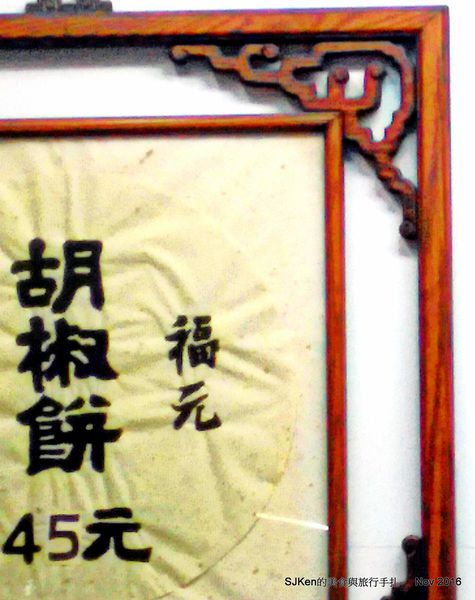 福元
胡椒餅
45元
SJKen的美食與旅行手扎 Nov 2016